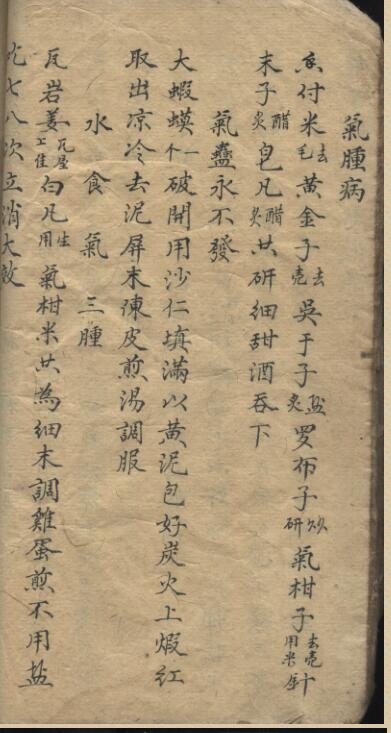 氣腫病
香付米去毛黃金子去壳吳于子盐炙罗布子炒研氣柑子去壳用米針
末子醋炙皂凡醋炙共研細甜酒吞下
氣蠱永不發
大蝦蟆一个破開用沙仁填滿以黃泥包好炭火上煅紅
取出凉冷去泥屏末陳皮煎湯調服
水食氣三腫
瓦岩姜瓦屋上佳白凡生用氣柑米共為細末調雞蛋煎不用盐
吃七八次立消大效